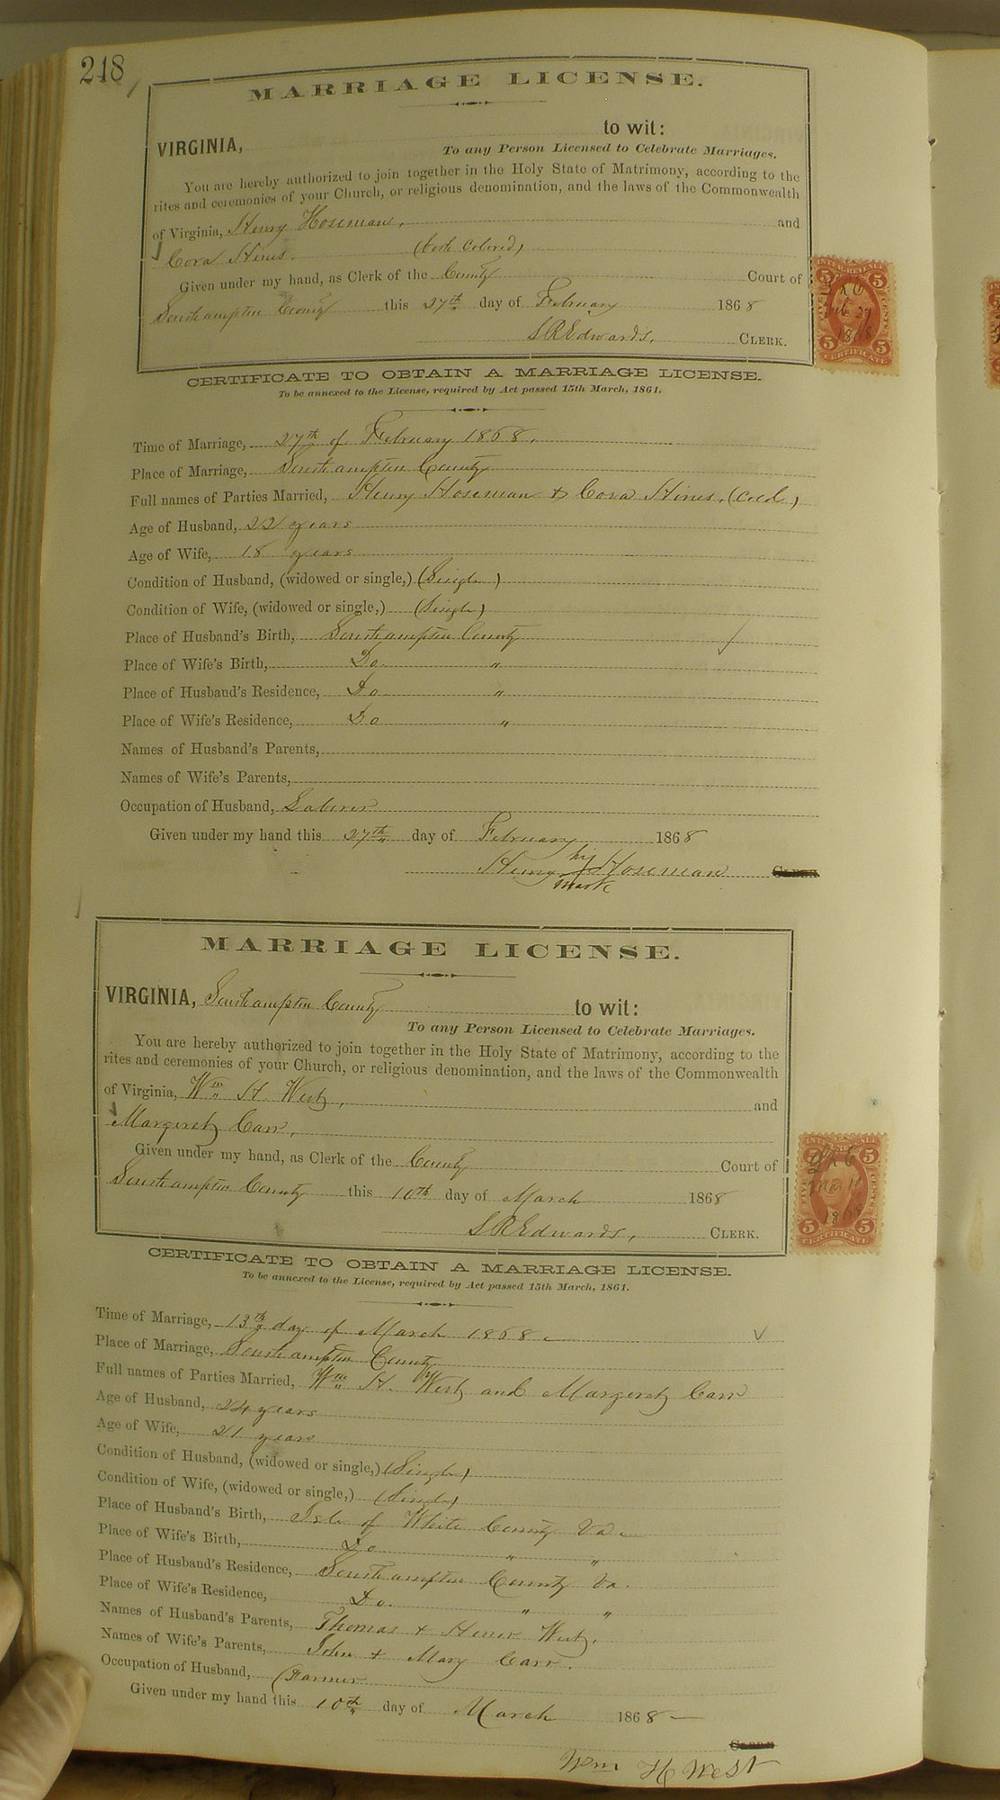 248
MARRIAGE LICENSE.
VIRGINIA, to wit:
To any Person Licensed to Celebrate Marriages.
You are hereby authorized to join together in the Holy State of Matrimony, according to the
rites and ceremonies of your Church, or religious denomination, and the laws of the Commonwealth
of Virginia, Henry Hoseman, and
Cora Hines. (both Colored)
Given under my hand, as Clerk of the County Court of
Southampton County this 27th day of February 1868
S R Edwards, CLERK.
INTER. REVENUE
5 5
Feb 27
1868
5 5
CERTIFICATE
CERTIFICATE TO OBTAIN A MARRIAGE LICENSE.
To be annexed to the License, required by Act passed 15th March, 1861.
Time of Marriage, 27th of February 1868.
Place of Marriage, Southampton County
Full names of Parties Married, Henry Hoseman & Cora Hines. (Cold)
Age of Husband, 22 years
Age of Wife, 18 years
Condition of Husband, (widowed or single,) (Single)
Condition of Wife, (widowed or single,) (Single)
Place of Husband's Birth, Southampton County
Place of Wife's Birth, Do "
Place of Husband's Residence, Do "
Place of Wife's Residence, Do "
Names of Husband's Parents,
Names of Wife's Parents,
Occupation of Husband, Laborer
Given under my hand this 27th day of February 1868
Henry his Hoseman CLERK
mark
MARRIAGE LICENSE.
VIRGINIA, Southampton County to wit:
To any Person Licensed to Celebrate Marriages.
You are hereby authorized to join together in the Holy State of Matrimony, according to the
rites and ceremonies of your Church, or religious denomination, and the laws of the Commonwealth
of Virginia, Wm H West, and
Margaret Carr,
Given under my hand, as Clerk of the County Court of
Southampton County this 10th day of March 1868
S R Edwards, CLERK.
INTER. REVENUE
5 5
1868
5 5
CERTIFICATE
CERTIFICATE TO OBTAIN A MARRIAGE LICENSE.
To be annexed to the License, required by Act passed 15th March, 1861.
Time of Marriage, 13th day of March 1868
Place of Marriage, Southampton County
Full names of Parties Married, Wm H. West and Margaret Carr
Age of Husband, 24 years
Age of Wife, 21 years
Condition of Husband, (widowed or single,) (Single)
Condition of Wife, (widowed or single,) (Single)
Place of Husband's Birth, Isle of White County Va.
Place of Wife's Birth, Do " "
Place of Husband's Residence, Southampton County Va.
Place of Wife's Residence, Do. " "
Names of Husband's Parents, Thomas & West.
Names of Wife's Parents, John & Mary Carr.
Occupation of Husband, Farmer
Given under my hand this 10th day of March 1868
CLERK
Wm H West